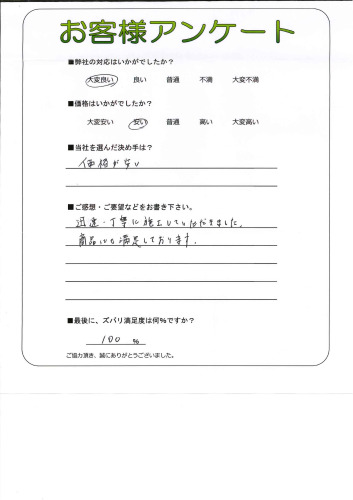 お客様アンケート
■弊社の対応はいかがでしたか？
大変良い 良い 普通 不満 大変不満
■価格はいかがでしたか？
大変安い 安い 普通 高い 大変高い
■当社を選んだ決め手は？
価格が安い
■ご感想・ご要望などをお書き下さい。
迅速・丁寧に施工していただきました。
商品にも満足しております。
■最後に、ズバリ満足度は何%ですか？
100 %
ご協力頂き、誠にありがとうございました。